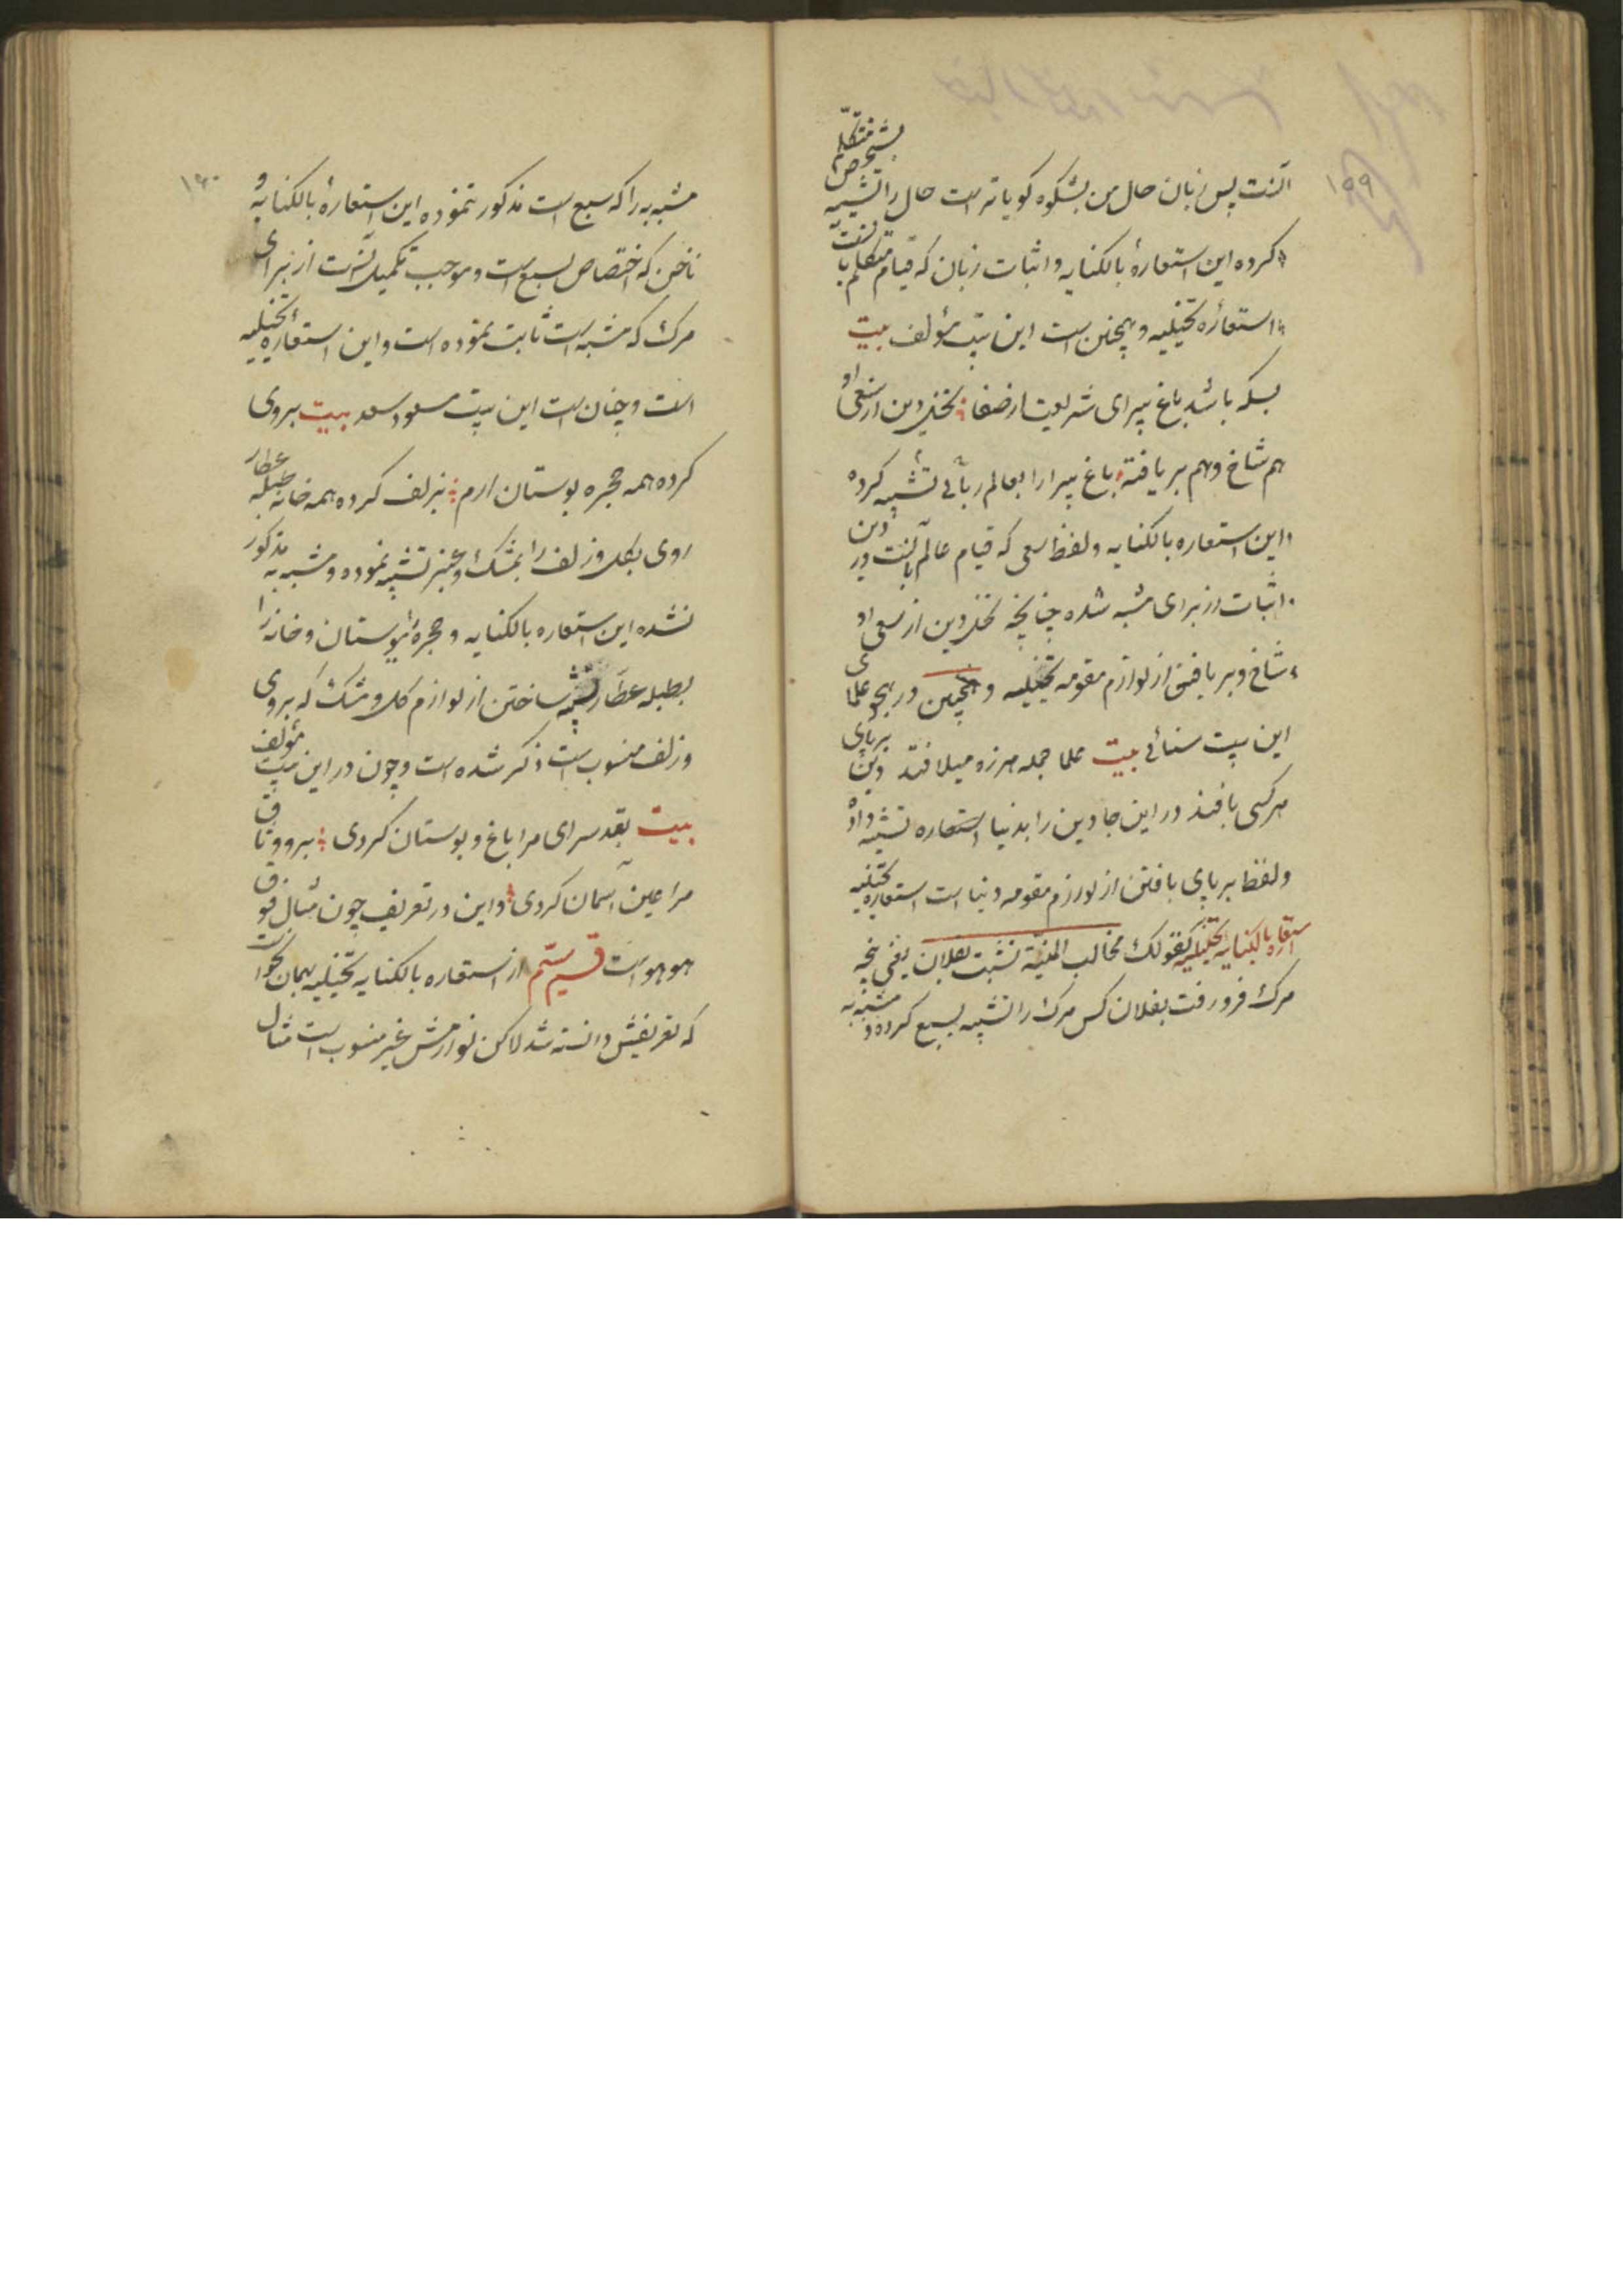 ۱۵۹
آنست پس زبان حال من بشکوه کویاتر است حال را تشبیه بشخص متکلّم
کرده این استعارهٔ بالکنایه و اثبات زبان که قیام متکلم بآنست
استعارهٔ تخییلیه و همچنین است این بیت مؤلف بیت
بسکه باشد باغ پیرای شریعت از صفا نخل دین از سعی او
هم شاخ و هم بر یافته باغ پیرا را بعالم ربّانی تشبیه کرده
و این استعاره بالکنایه و لفظ سعی که قیام عالم بآنست در دین
اثبات از برای مشبه شده چنانچه نخل دین از سعی او
شاخ و بر یافتن از لوازم مقومه تخییلیه و همچنین در هجو علمای
این بیت سنائی بیت علما جمله هرزه میلافند دین بر پای
هرکسی بافند در این جا دین را بدنیا استعاره تشبیه داده
و لفظ بر پای بافتن از لوازم مقومه دنیا است استعاره تخییلیه
استعاره بالکنایه تخییلیه کقولک مخالب المنیّة نشبت بفلان یعنی پنجه
مرک فرو رفت بفلان کس مرک را تشبیه بسبع کرده و مشبه به
۱۶۰
مشبه به را که سبع است مذکور ننموده این استعارهٔ بالکنایه و
ناخن که اختصاص بسبع است و موجب تکمیل آنست از برای
مرک که مشبه است ثابت نموده است و این استعارهٔ تخییلیه
است و چنان است این بیت مسعود سعد بیت بروی
کرده همه حجره بوستان ارم بزلف کرده همه خانه طبلهٔ عطار
روی بکل و زلف را بمشک و عنبر تشبیه نموده و مشبه به مذکور
نشده این استعاره بالکنایه و حجره را ببوستان و خانه را
بطبله عطّار تشبیه ساختن از لوازم کل و مشک که بروی
و زلف منسوب است ذکر شده است و چون در این بیت مؤلف
بیت بقد سرای مرا باغ و بوستان کردی برو وثاق
مرا عین آسمان کردی و این در تعریف چون مثال فوق
هو هو است قسم ستم از استعاره بالکنایه تخییلیه بهمان نحو است
که تعریفش دانسته شد لاکن لوازمش غیر منسوب است مثال